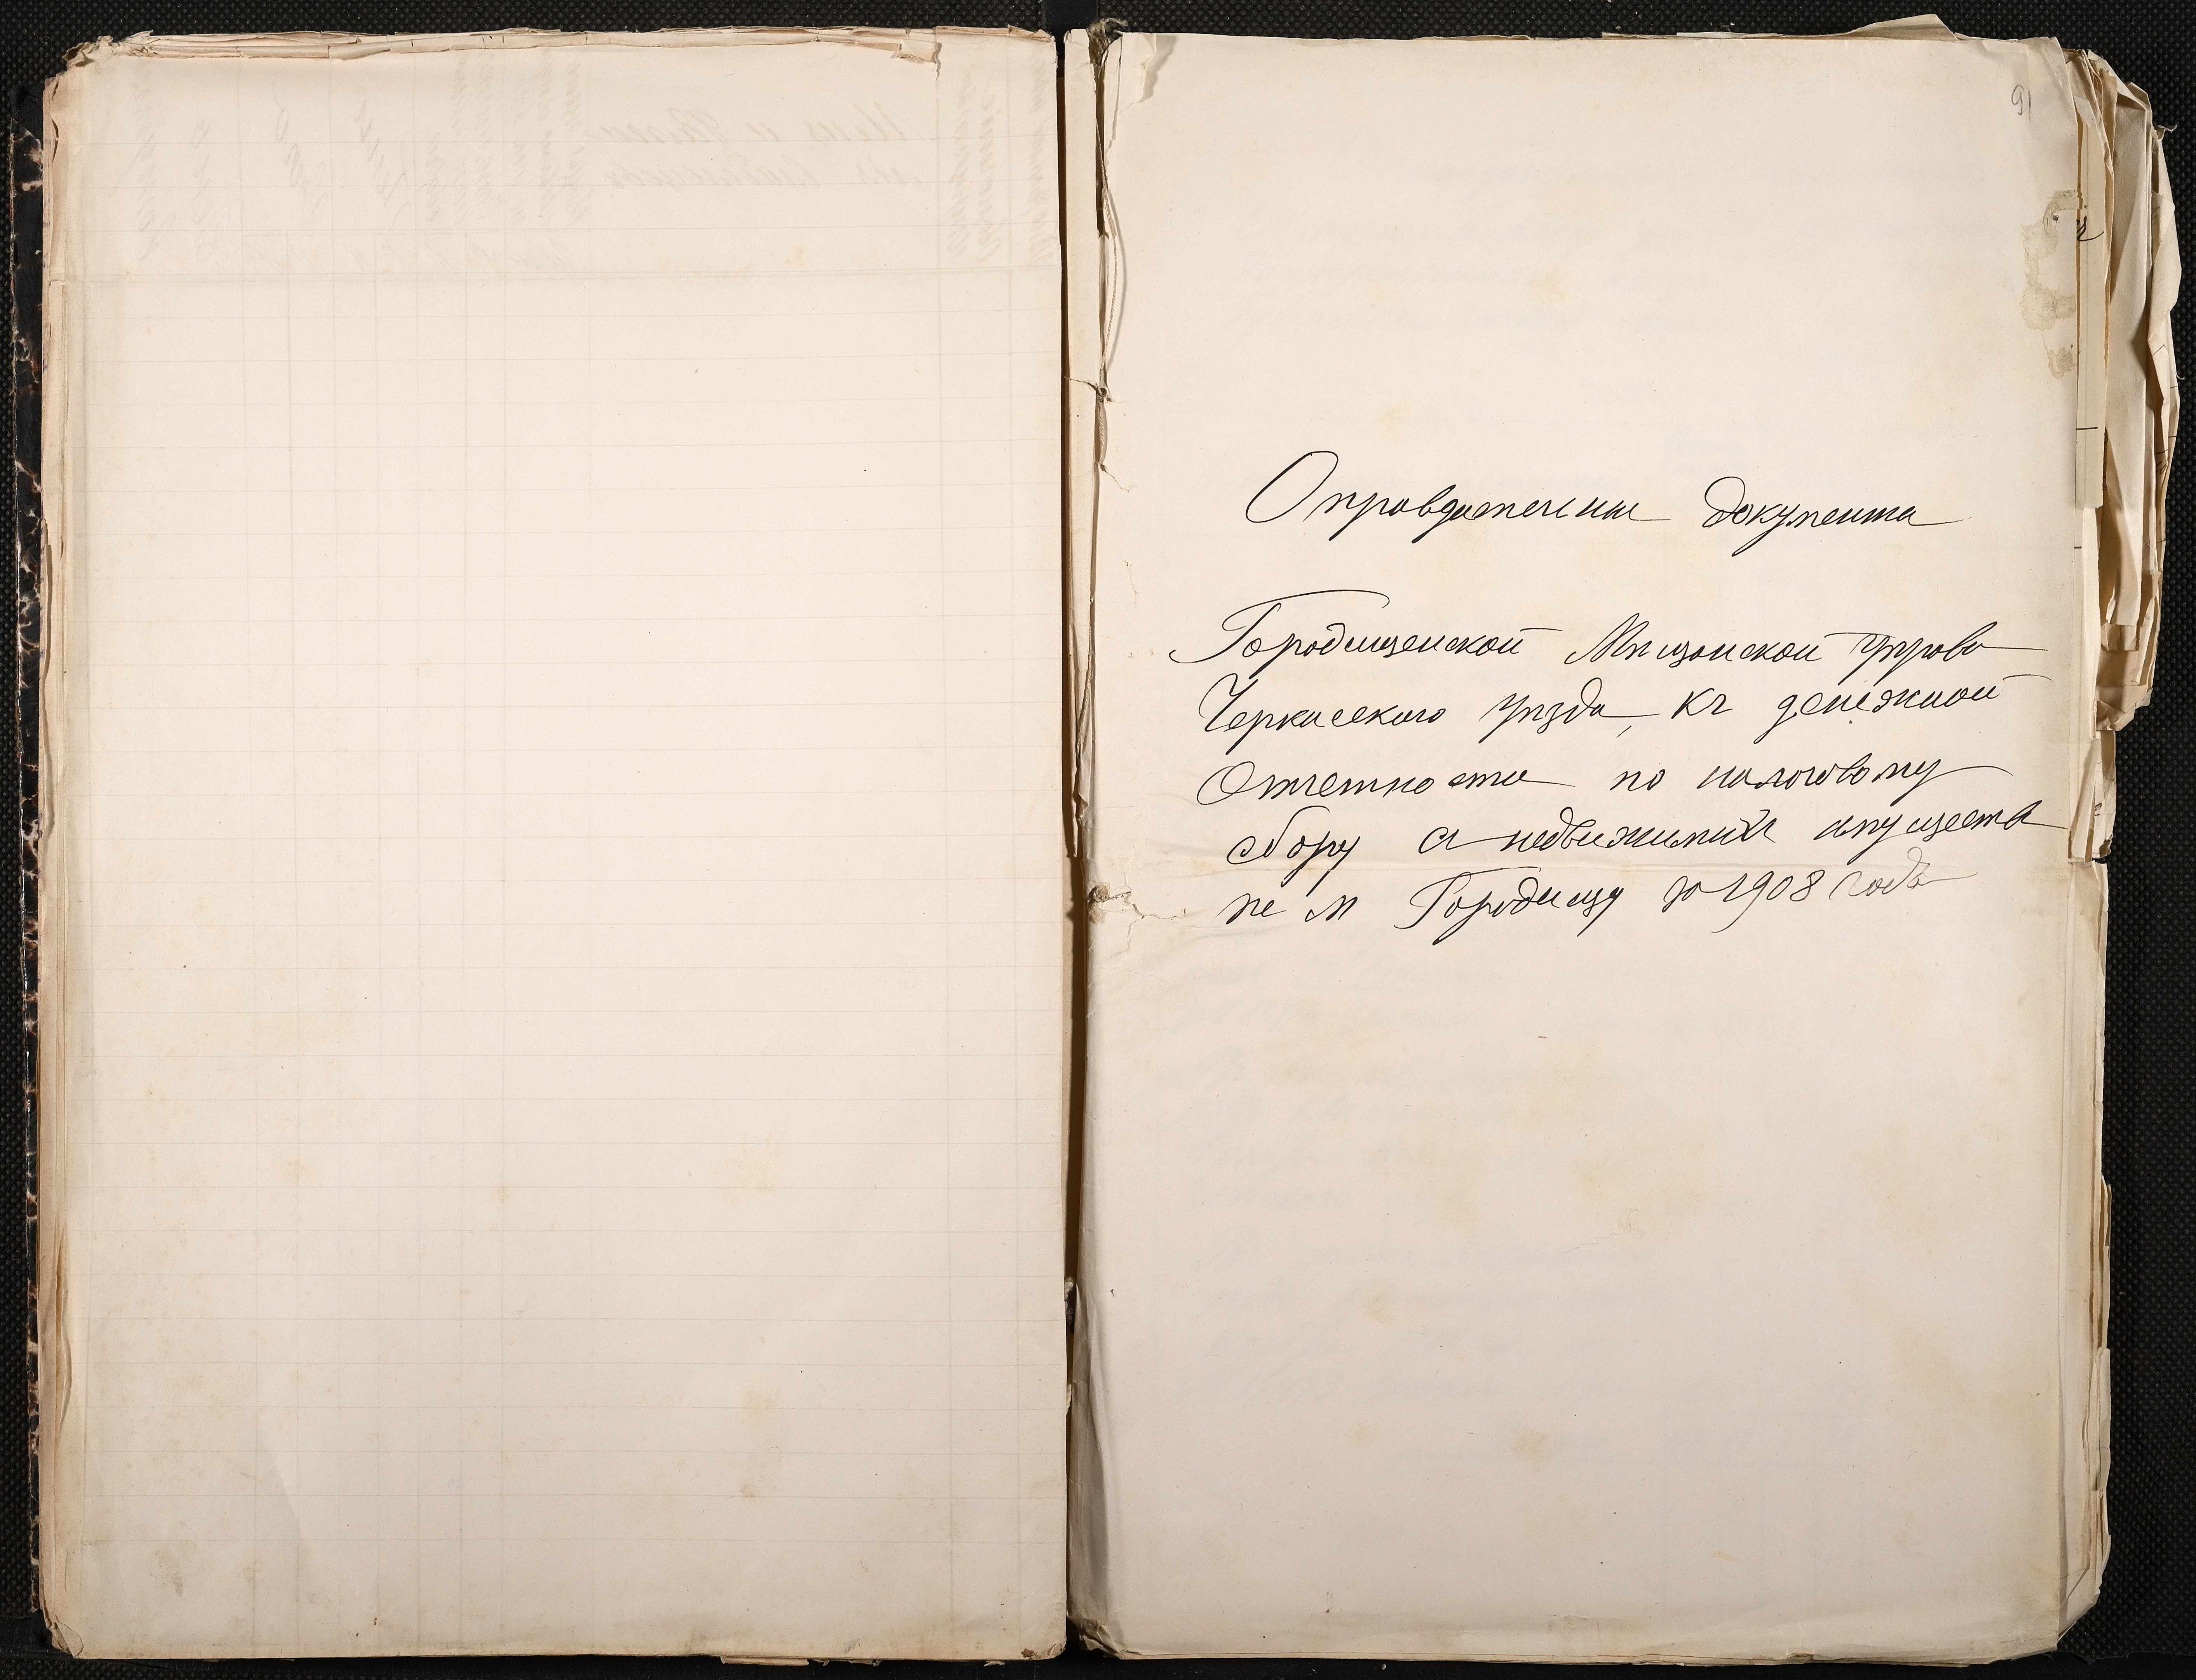 91
Оправдателни документа
Городищенской Мѣщанской управы
Черкасского уѣзда, къ денежной
Отчетности по налоговому
сбору съ недвижимихъ имуществ
по м Городищу за 1908 годъ